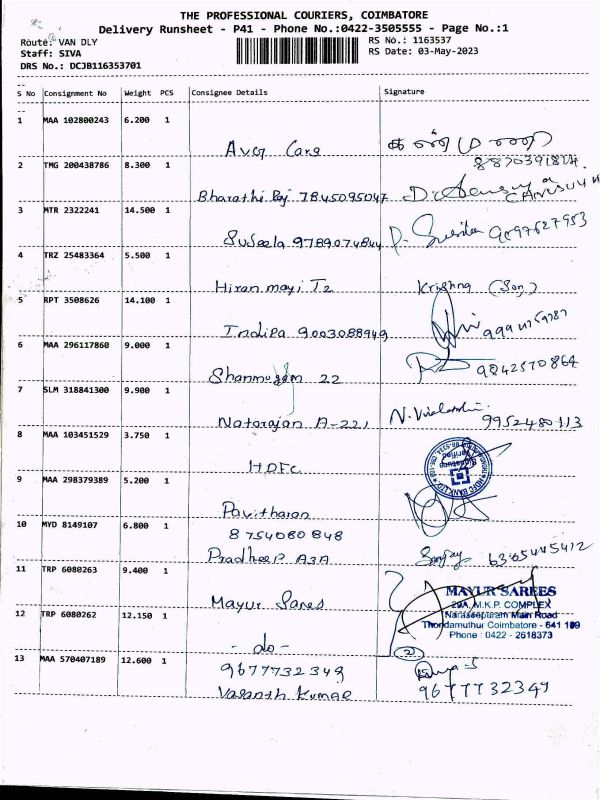 THE PROFESSIONAL COURIERS, COIMBATORE
Delivery Runsheet - P41 - Phone No.:0422-3505555 - Page No.:1
Route: VAN DLY
Staff: SIVA
DRS No.: DCJB116353701
RS No.: 1163537
RS Date: 03-May-2023
S No Consignment No Weight PCS Consignee Details Signature
1 MAA 102800243 6.200 1
Cars
2 TMG 200438786 8.300 1
Bharathi Raj 7845095047
3 MTR 2322241 14.500 1
Suseela 9789074844 9097627953
4 TRZ 25483364 5.500 1
Hiranmayi T2 Krishna (Son)
5 RPT 3508626 14.100 1
Indira 9003088949
6 MAA 296117860 9.000 1
Shanmugam 22 9842570864
7 SLM 318841300 9.900 1
Natarajan A-221 9952480113
8 MAA 103451529 3.750 1
HDFC
9 MAA 298379389 5.200 1
Pavitharan
8754080848
10 MYD 8149107 6.800 1
Pradheep A3A Sanjay 6385445412
11 TRP 6080263 9.400 1
Mayur Sarees
MAYUR SAREES
29A, M.K.P. COMPLEX
Naraseepuram Main Road
Thondamuthur Coimbatore - 641 109
Phone : 0422 - 2618373
12 TRP 6080262 12.150 1
- do -
2
13 MAA 570407189 12.600 1
9677732349
Vasanth Kumar 9677732349